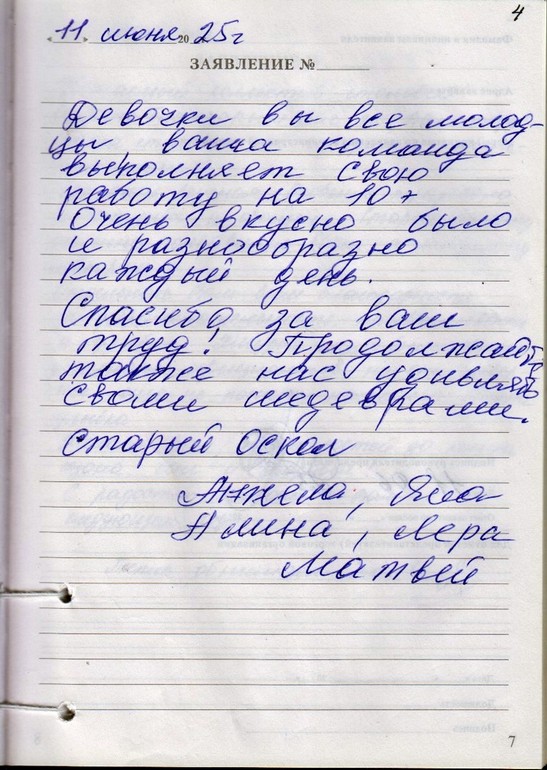 4
„11" июня 20 25г
ЗАЯВЛЕНИЕ №
Девочки вы все молод-
цы ваша команда
выполняет свою
работу на 10+
Очень вкусно было
и разнообразно
каждый день.
Спасибо за ваш
труд! Продолжайте
также нас удивлять
своми шедеврами.
Старый Оскол
Анжела, Яна
Алина, Лера
Матвей
7